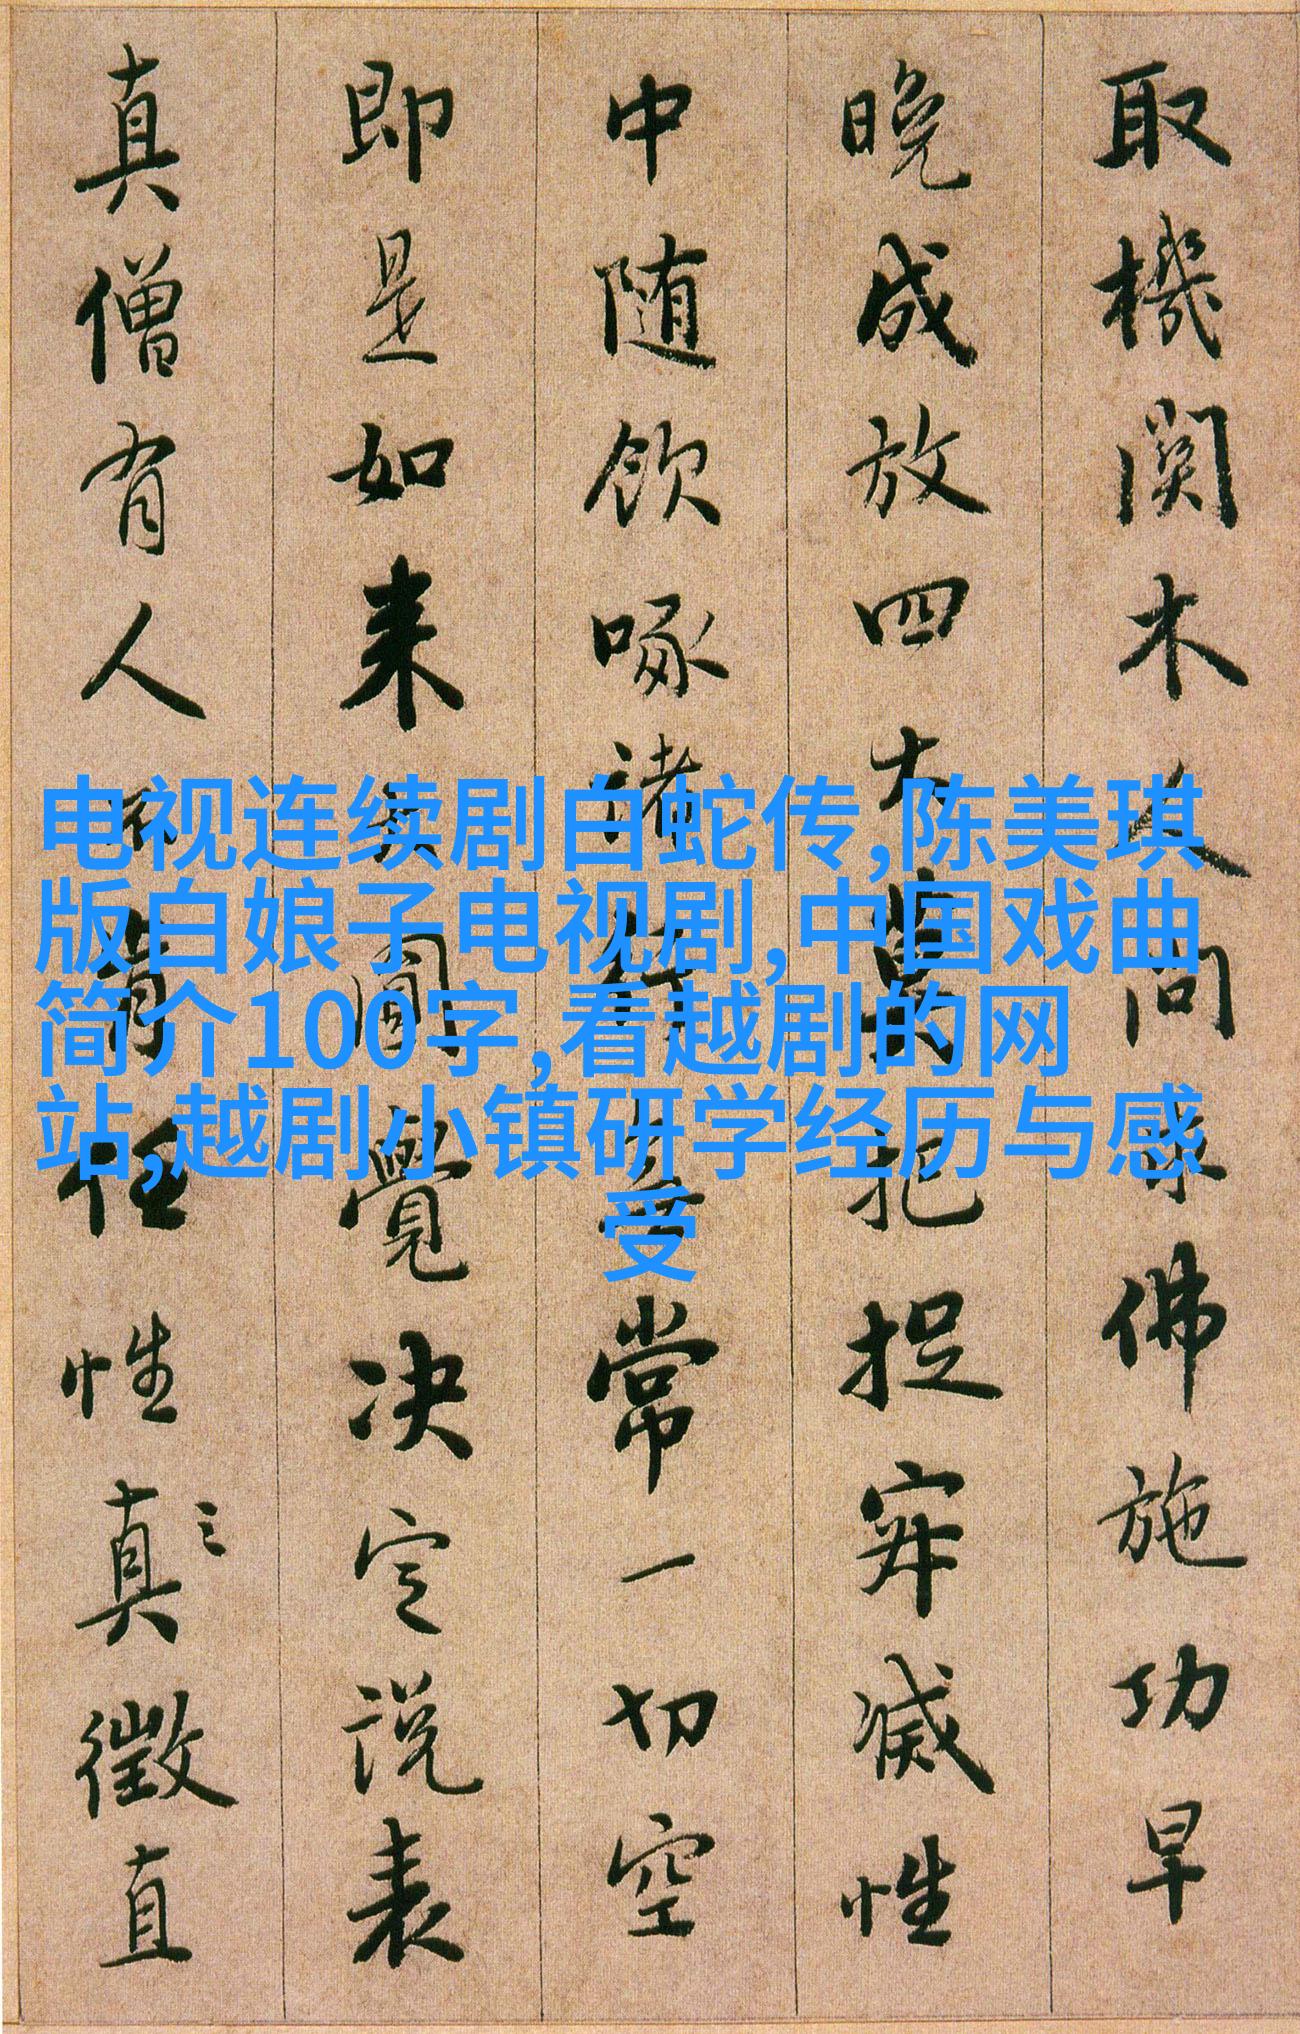 取機関木人問求佛施功早
晚成放四大莫把捉寂滅性
中随飲啄諸行無常一切空
即是如来大圓覺决定説表
真僧有人不肯任性真徵直
电视连续剧白蛇传,陈美琪
版白娘子电视剧,中国戏曲
简介100字,看越剧的网
站,越剧小镇研学经历与感
受